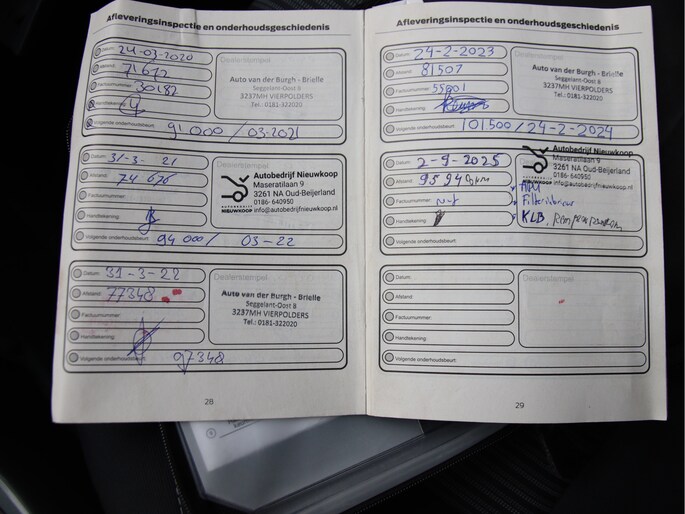 Afleveringsinspectie en onderhoudsgeschiedenis
Datum: 24-03-2020
Afstand: 71672
Factuurnummer: 30182
Handtekening:
Volgende onderhoudsbeurt: 91000 / 03-2021
Dealerstempel
Auto van der Burgh - Brielle
Seggelant-Oost 8
3237MH VIERPOLDERS
Tel.: 0181-322020
Datum: 31-3-21
Afstand: 74 676
Factuurnummer:
Handtekening:
Volgende onderhoudsbeurt: 94 000 / 03-22
Dealerstempel
AUTOBEDRIJF
NIEUWKOOP
Autobedrijf Nieuwkoop
Maseratilaan 9
3261 NA Oud-Beijerland
0186- 640950
info@autobedrijfnieuwkoop.nl
Datum: 31-3-22
Afstand: 77348
Factuurnummer:
Handtekening:
Volgende onderhoudsbeurt: 97348
Dealerstempel
Auto van der Burgh - Brielle
Seggelant-Oost 8
3237MH VIERPOLDERS
Tel.: 0181-322020
28
Afleveringsinspectie en onderhoudsgeschiedenis
Datum: 24-2-2023
Afstand: 81507
Factuurnummer:
Handtekening:
Volgende onderhoudsbeurt: 101500 / 24-2-2024
Dealerstempel
Auto van der Burgh - Brielle
Seggelant-Oost 8
3237MH VIERPOLDERS
Tel.: 0181-322020
Datum: 2-9-2025
Afstand: 95940 km
Factuurnummer:
Handtekening:
Volgende onderhoudsbeurt:
Dealerstempel
AUTOBEDRIJF
NIEUWKOOP
Autobedrijf Nieuwkoop
Maseratilaan 9
3261 NA Oud-Beijerland
0186- 640950
info@autobedrijfnieuwkoop.nl
KLB,
Datum:
Afstand:
Factuurnummer:
Handtekening:
Volgende onderhoudsbeurt:
Dealerstempel
29